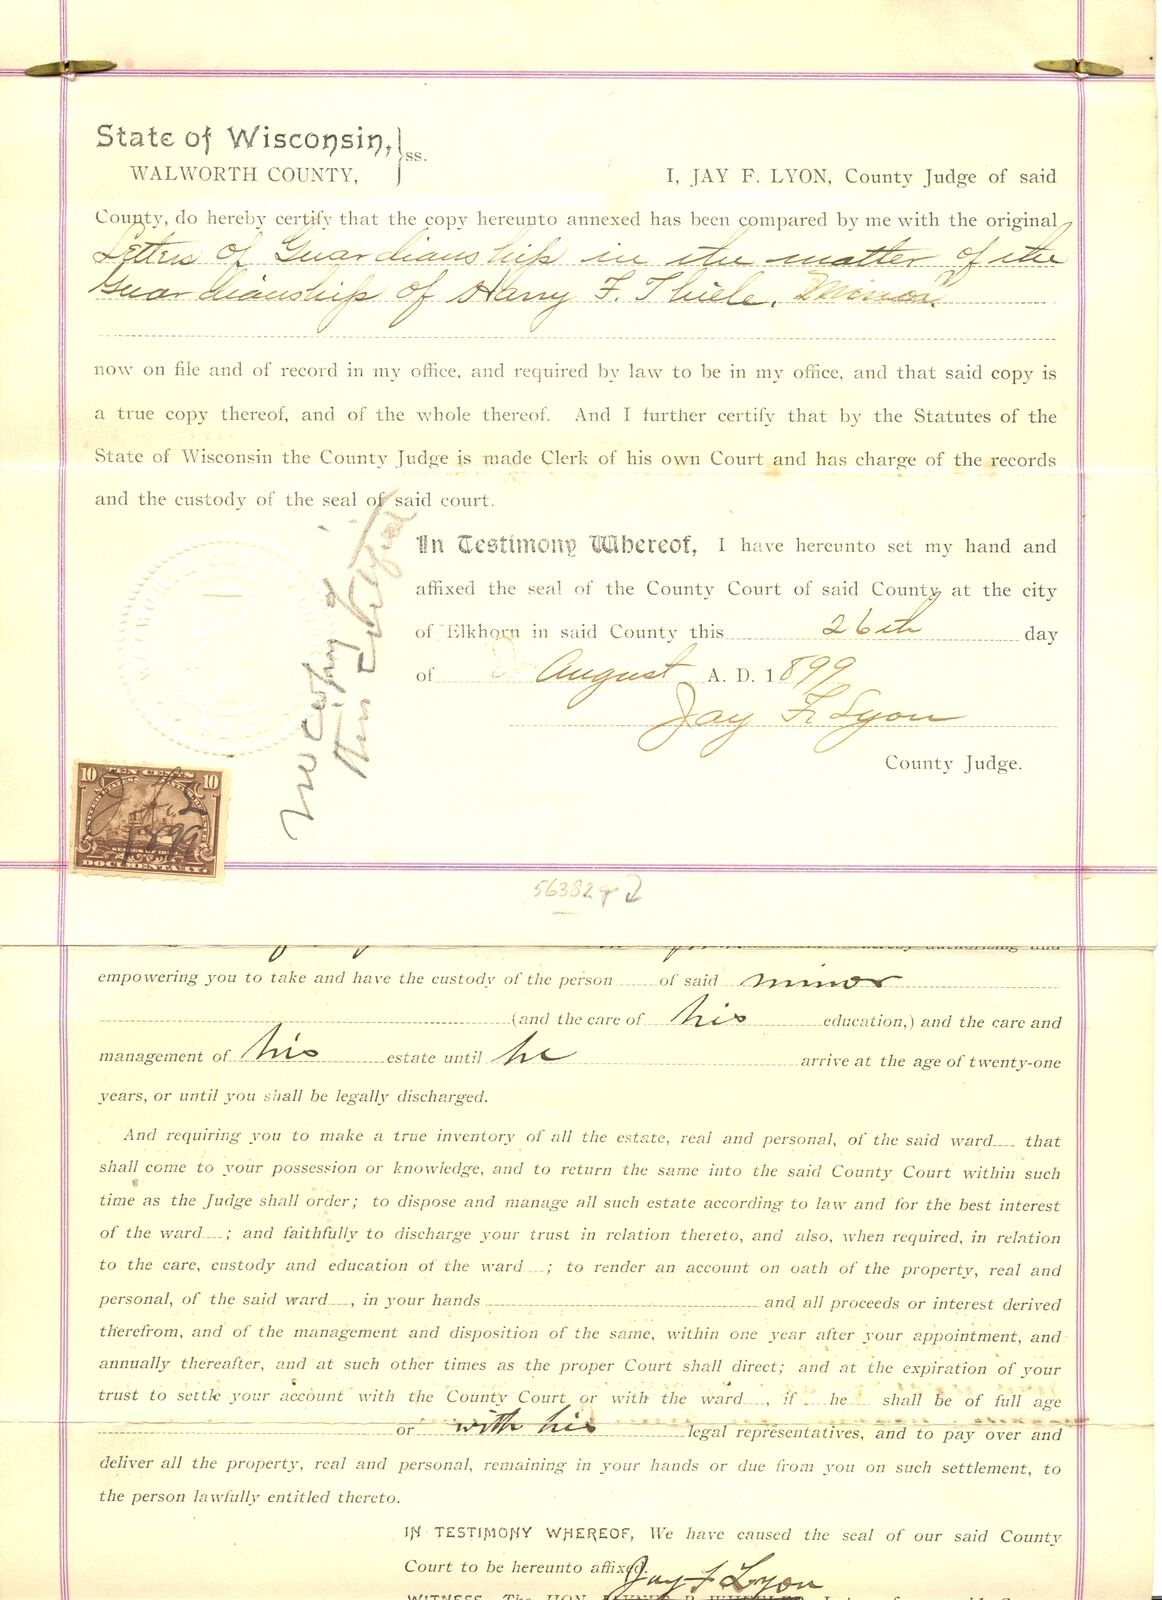 State of Wisconsin, } ss.
WALWORTH COUNTY,
I, JAY F. LYON, County Judge of said
County, do hereby certify that the copy hereunto annexed has been compared by me with the original
Letters of Guardianship in the matter of the
Guardianship of Harry F. Thiele, Minor.
now on file and of record in my office, and required by law to be in my office, and that said copy is
a true copy thereof, and of the whole thereof. And I further certify that by the Statutes of the
State of Wisconsin the County Judge is made Clerk of his own Court and has charge of the records
and the custody of the seal of said court.
In Testimony Whereof, I have hereunto set my hand and
affixed the seal of the County Court of said County at the city
of Elkhorn in said County this 26th day
of August A. D. 1899
Jay F Lyon
County Judge.
10 TEN CENTS 10
1899
DOCUMENTARY
56382
hereby authorizing and
empowering you to take and have the custody of the person of said minor
(and the care of his education,) and the care and
management of his estate until he arrive at the age of twenty-one
years, or until you shall be legally discharged.
And requiring you to make a true inventory of all the estate, real and personal, of the said ward that
shall come to your possession or knowledge, and to return the same into the said County Court within such
time as the Judge shall order; to dispose and manage all such estate according to law and for the best interest
of the ward ; and faithfully to discharge your trust in relation thereto, and also, when required, in relation
to the care, custody and education of the ward ; to render an account on oath of the property, real and
personal, of the said ward , in your hands and all proceeds or interest derived
therefrom, and of the management and disposition of the same, within one year after your appointment, and
annually thereafter, and at such other times as the proper Court shall direct; and at the expiration of your
trust to settle your account with the County Court or with the ward , if he shall be of full age
or with his legal representatives, and to pay over and
deliver all the property, real and personal, remaining in your hands or due from you on such settlement, to
the person lawfully entitled thereto.
IN TESTIMONY WHEREOF, We have caused the seal of our said County
Court to be hereunto affixed.
Jay F Lyon
WITNESS, The HON.